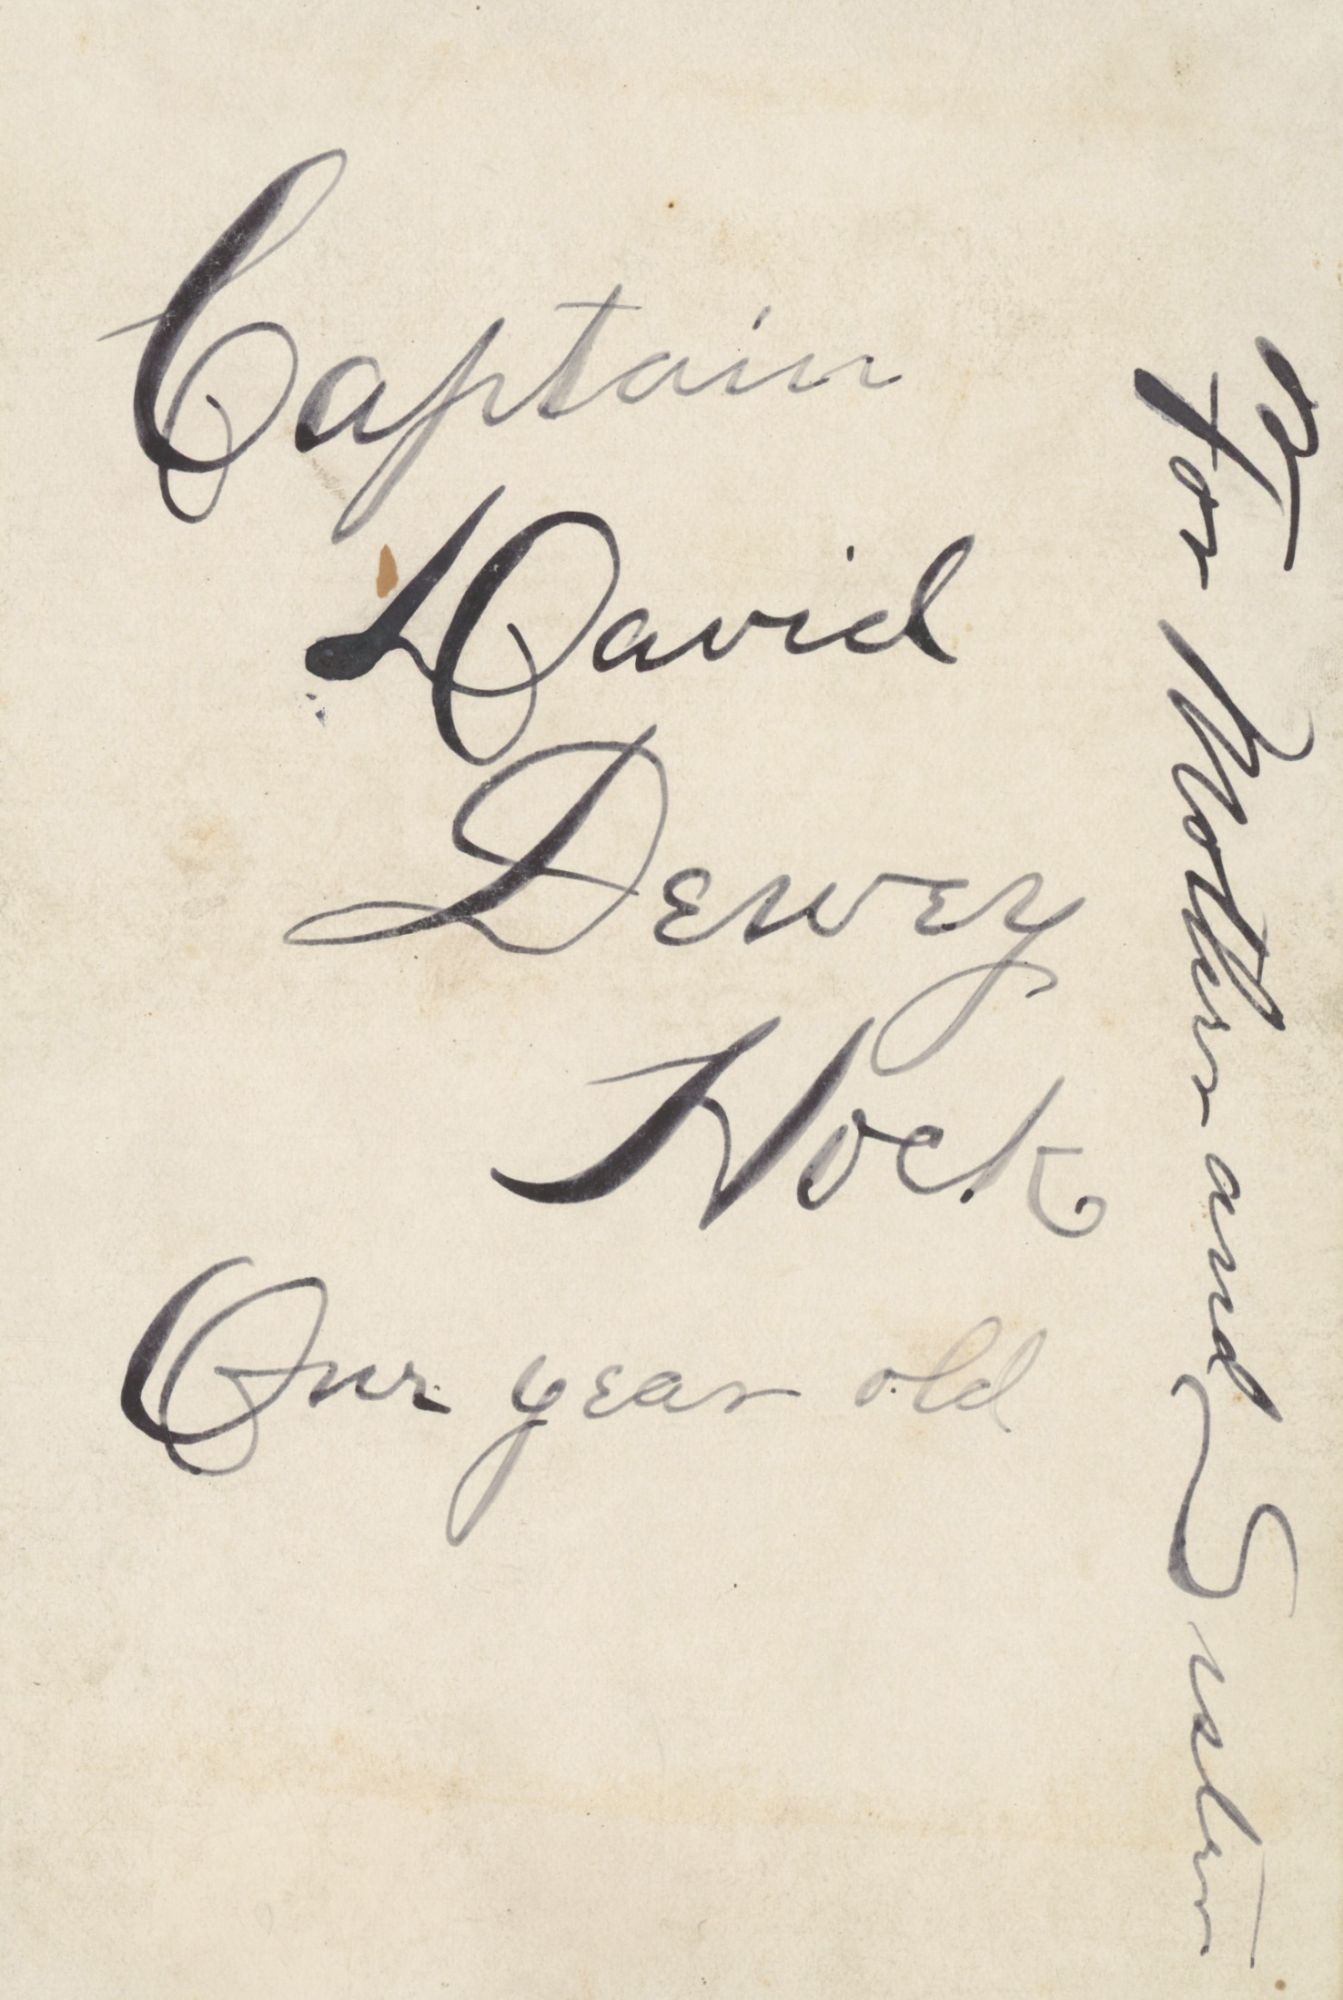 Captain
David
Dewey
Nock
One year old
For Mother and Sister